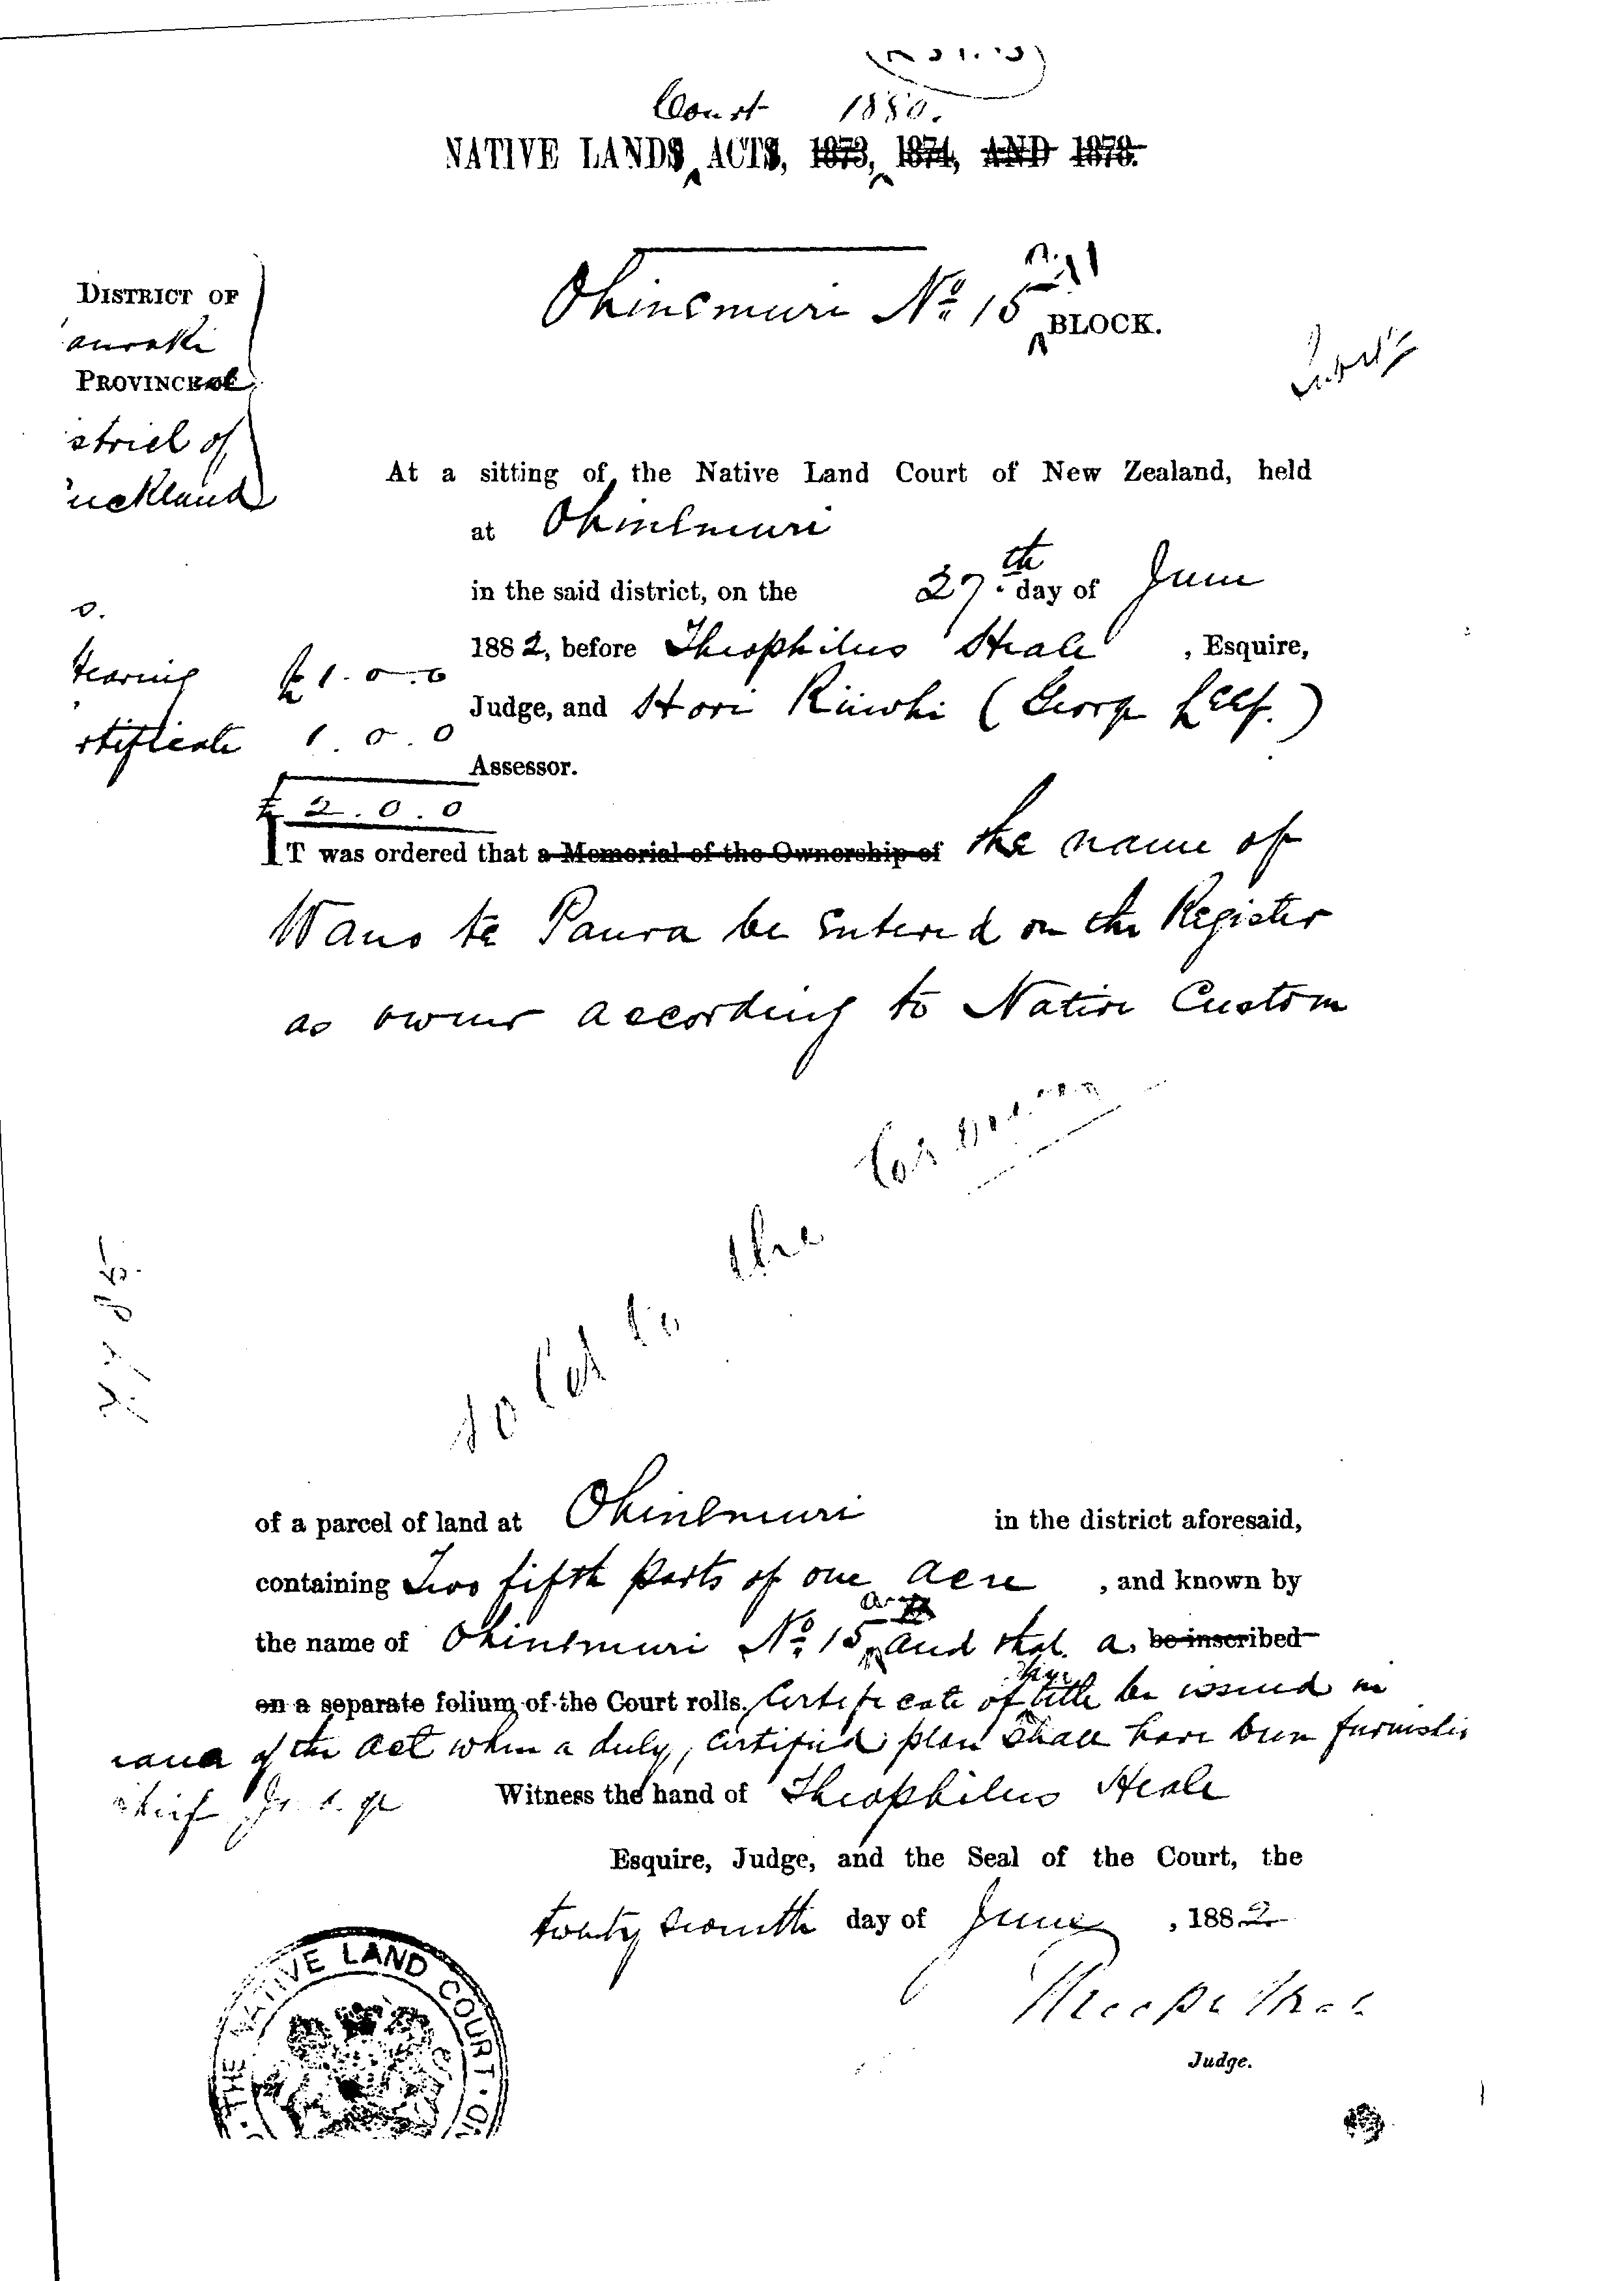 Court 1880.
NATIVE LANDS ACTS, 1873, 1874, AND 1878.
Ohinemuri No 15 BLOCK.
DISTRICT OF
auraki
PROVINCE
strict of
uckland
At a sitting of the Native Land Court of New Zealand, held
at Ohinemuri
in the said district, on the 27th day of June
1882, before Theophilus Heale, Esquire,
Hearing £1.0.0
Judge, and Hori Riiwhi (George Leef.)
rtificate 1.0.0
Assessor.
£2.0.0
IT was ordered that a Memorial of the Ownership of the name of
te Paura be entered on the Register
as owner according to Native Custom
sold to the
of a parcel of land at Ohinemuri in the district aforesaid,
containing Two fifth parts of one acre, and known by
the name of Ohinemuri No 15 and that a be inscribed
on a separate folium of the Court rolls. Certificate of title be issued in
of the Act when a duly certified plan shall have been furnishe
hief Judge Witness the hand of Theophilus Heale
Esquire, Judge, and the Seal of the Court, the
twenty seventh day of June, 1882
Judge.
THE NATIVE LAND COURT